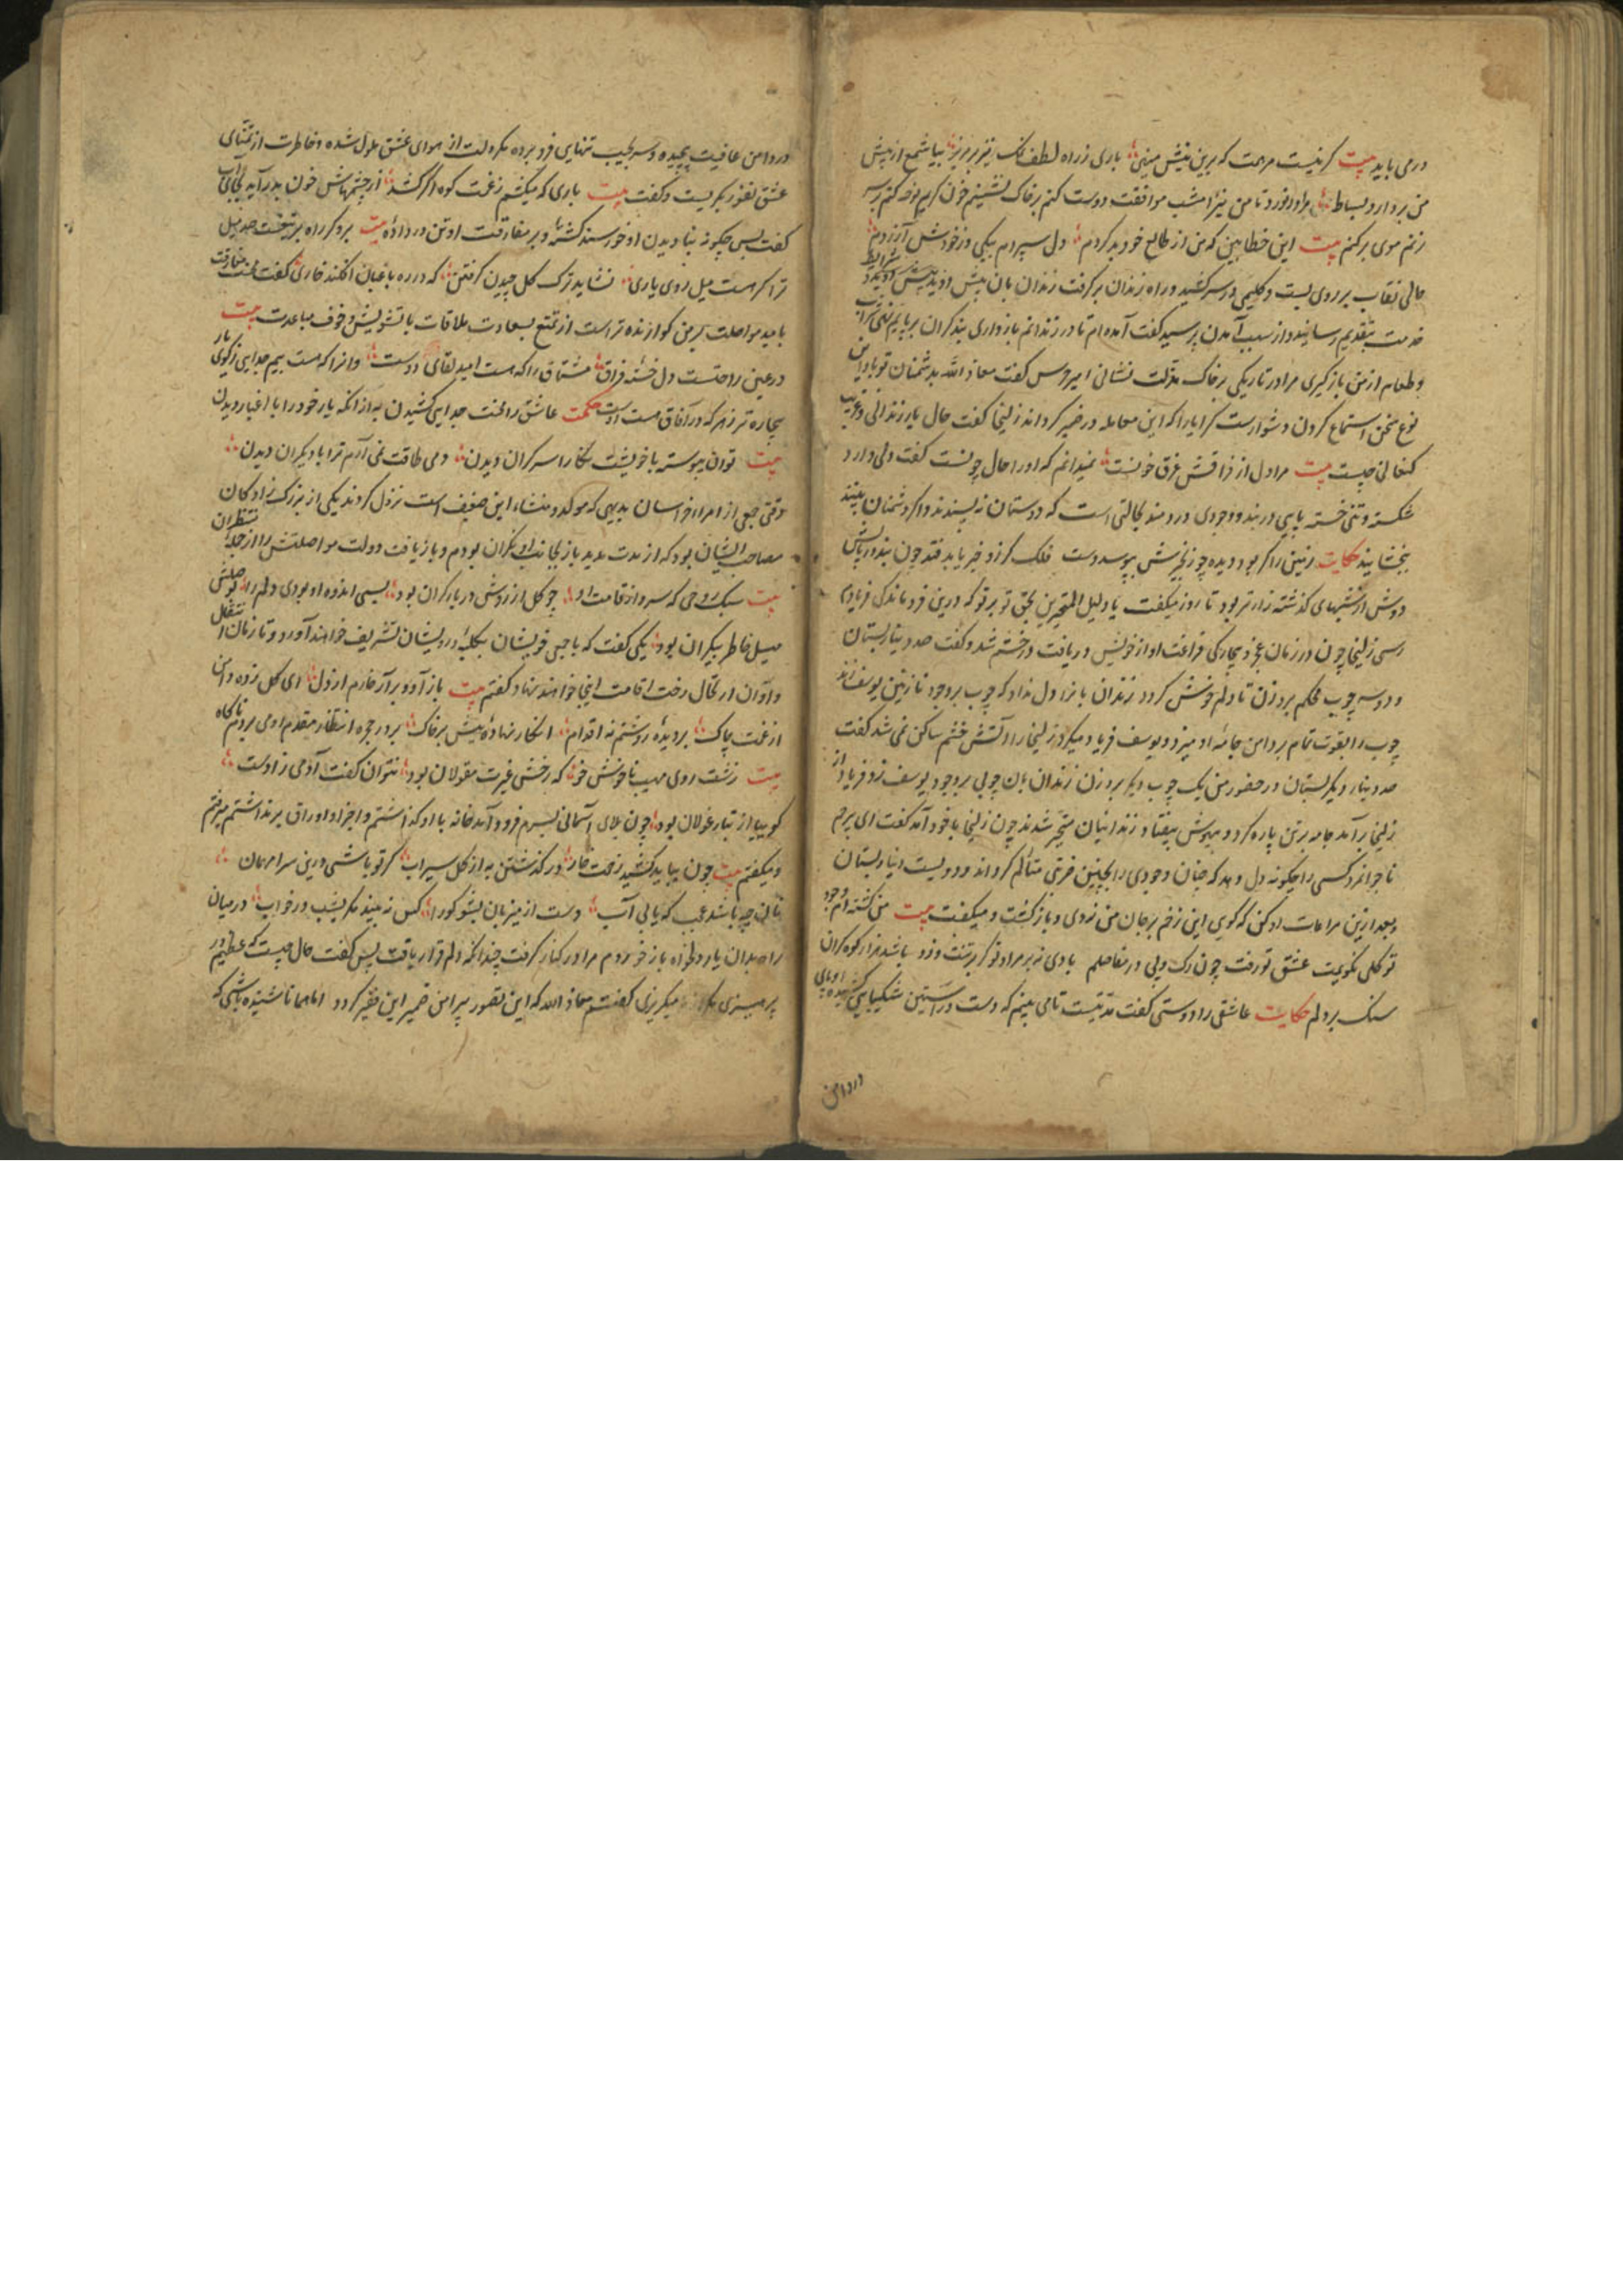 در می باید بیت کر نیست مرهمت که برین نیش مینی باری ز راه لطف نمک نیز بریز بیا شمع از پیش
من بردار و بساط مرا در نورد تا من نیز امشب موافقت دوست کنم بر خاک نشینم خون کریم نوحه کنم بر سر
زنم موی بر کنم بیت این خطا بین که من از طالع خود بد کردم دل سپردم بیکی وز خودش آزردم
حالی نقاب بر روی بست و کلیمی در سر کشید و راه زندان بر کرفت زندان بان پیش او دوید شرایط
خدمت بتقدیم رسانید و از سبب آمدن پرسید کفت آمده ام تا در زندانم باز داری بند کران بر پایم نهی شراب
و طعام از من باز کیری مرا در تاریکی بر خاک مذلت نشانی امیر حرس کفت معاذ الله بدشمنان تو باد این
نوع سخن استماع کردن دشوارست کرا یارا که این معامله در ضمیر کرداند زلیخا کفت حال یار زندانی و غریب
کنعانی چیست بیت مرا دل از فراقش غرق خونست نمیدانم که او را حال چونست کفت دلی دارد
شکسته و تنی خسته پایی در بند و وجودی دردمند بحالتی است که دوستان نپسندند و اکر دشمنان ببینند
ببخشایند حکایت
دوش از شبهای کذشته زارتر بود تا روز میکفت یا دلیل المتحیرین بحق تو بر تو که درین فروماندکی فریادم
رسی زلیخا چون در زمان عجز و بیچارکی فراغت او از خویش دریافت در خشم شد و کفت صد دینار بستان
و دو سه چوب محکم برو زن تا دلم خوش کردد زندان بانرا دل نداد که چوب بر وجود نازنین یوسف زند
چوب را بقوت تمام بر دامن جامۀ او میزد و یوسف فریاد میکرد زلیخا را آتش خشم ساکن نمی شد کفت
صد دینار دیکر بستان و در حضور من یک چوب دیکر برو زن زندان بان چوبی بر وجود یوسف زد فریاد از
زلیخا برآمد جامه بر تن پاره کرد و بیهوش بیفتاد زندانیان متحیر شدند چون زلیخا باخود آمد کفت ای بی رحم
ناجوانمرد کسی را چکونه دل دهد که چنان وجودی را بچنین ضربتی متألم کرداند و دویست دینار بستان
و بعد ازین مراعات او کن که کویی این زخم بر جان من زدی و باز کشت و میکفت بیت من کشته ام وجود
تو کلی نکویمت عشق تو رفت چون رک و پی در مفاصلم بادی نه بر مراد تو کر بر تنت وزد باشد هزار کوه کران
سنک بر دلم حکایت عاشقی را دوستی کفت مدتیست تا می بینم که دست در آستین شکیبایی کشیده و پای
در دامن
در دامن عافیت پیچیده و سر بجیب تنهایی فرو برده مکر دلت از هوای عشق ملول شده و خاطرت از تمنای
عشق نفور بکریست و کفت بیت باری که میکشم ز غمت کوه اکر کشد از چشمهاش خون بدر آید بجای آب
کفت پس چکونه بنادیدن او خورسند کشتۀ و بر مفارقت او تن در دادۀ بیت برو کر راه بر تیغست صد میل
ترا کر هست میل روی یاری نشاید ترک کل چیدن کرفتن که در ره باغبان افکند خاری کفت محنت مفارقت
بامید مواصلت بر من کوارنده تر است از تمتع بسعادت ملاقات با تشویش و خوف مباعدت بیت
در عین راحتست دل خستۀ فراق مشتاق را که هست امید لقای دوست وانرا که هست بیم جدایی ز کوی یار
بیچاره تر ز هر که در آفاق هست اوست حکمت عاشق را محنت جدایی کشیدن به از انکه یار خود را با اغیار دیدن
بیت توان پیوسته با خویشت نکارا سر کران دیدن ولی طاقت نمی آرم ترا با دیکران دیدن
وقتی جمعی از امراء خراسان بدیهی که مولد و منشاء این ضعیف است نزول کردند یکی از بزرک زادکان
مصاحب ایشان بود که از مدت مدید باز بجانب او نکران بودم و بازیافت دولت مواصلتش را از خدا منتظران
بیت سبک روحی که سرو از قامت او چو کل از زوش در بار کران بود بسی اندوه او بودی دلم را بوصلش
میل خاطر بیکران بود یکی کفت که باجمی خویشان بکلبۀ درویشان تشریف خواهند آورد و تا زمان تنقل
وا آوان ارتحال رخت اقامت اینجا خواهند نهاد کفتم بیت باز آ و برآر خارم از دل ای کل زده دامن
از غمت چاک بر دیدۀ روشنم نه اقدام انکار نهادۀ پیش بر خاک بر در حجره انتظار مقدم او می بردم ناکاه
بیت زشت روی مهیب ناخوش خو که رخش غیرت مغولان بود نتوان کفت آدمی زادست
کوییا از تبار غولان بود چون بلای آسمانی بسرم فرود آمد خانه با او کذاشتم و اجزا و اوراق برنداشتم میرفتم
و میکفتم بیت چون بباید کشید زحمت خار در کذشتن به از کل سیراب کر تو باشی درین سرا مهمان
نان چه باشد عجب که یابی آب دست از میزبان بشو کو را کس نبیند مکر بشب در خواب در میان
راه بدان یار دلخواه باز خوردم مرا در کنار کرفت چندانکه دلم قرار یافت پس کفت حال چیست که عظیم
پرهیزی میکریزی کفتم معاذ الله که این تصور پیرامن ضمیر این فقیر کردد اما همانا شنیده باشی که